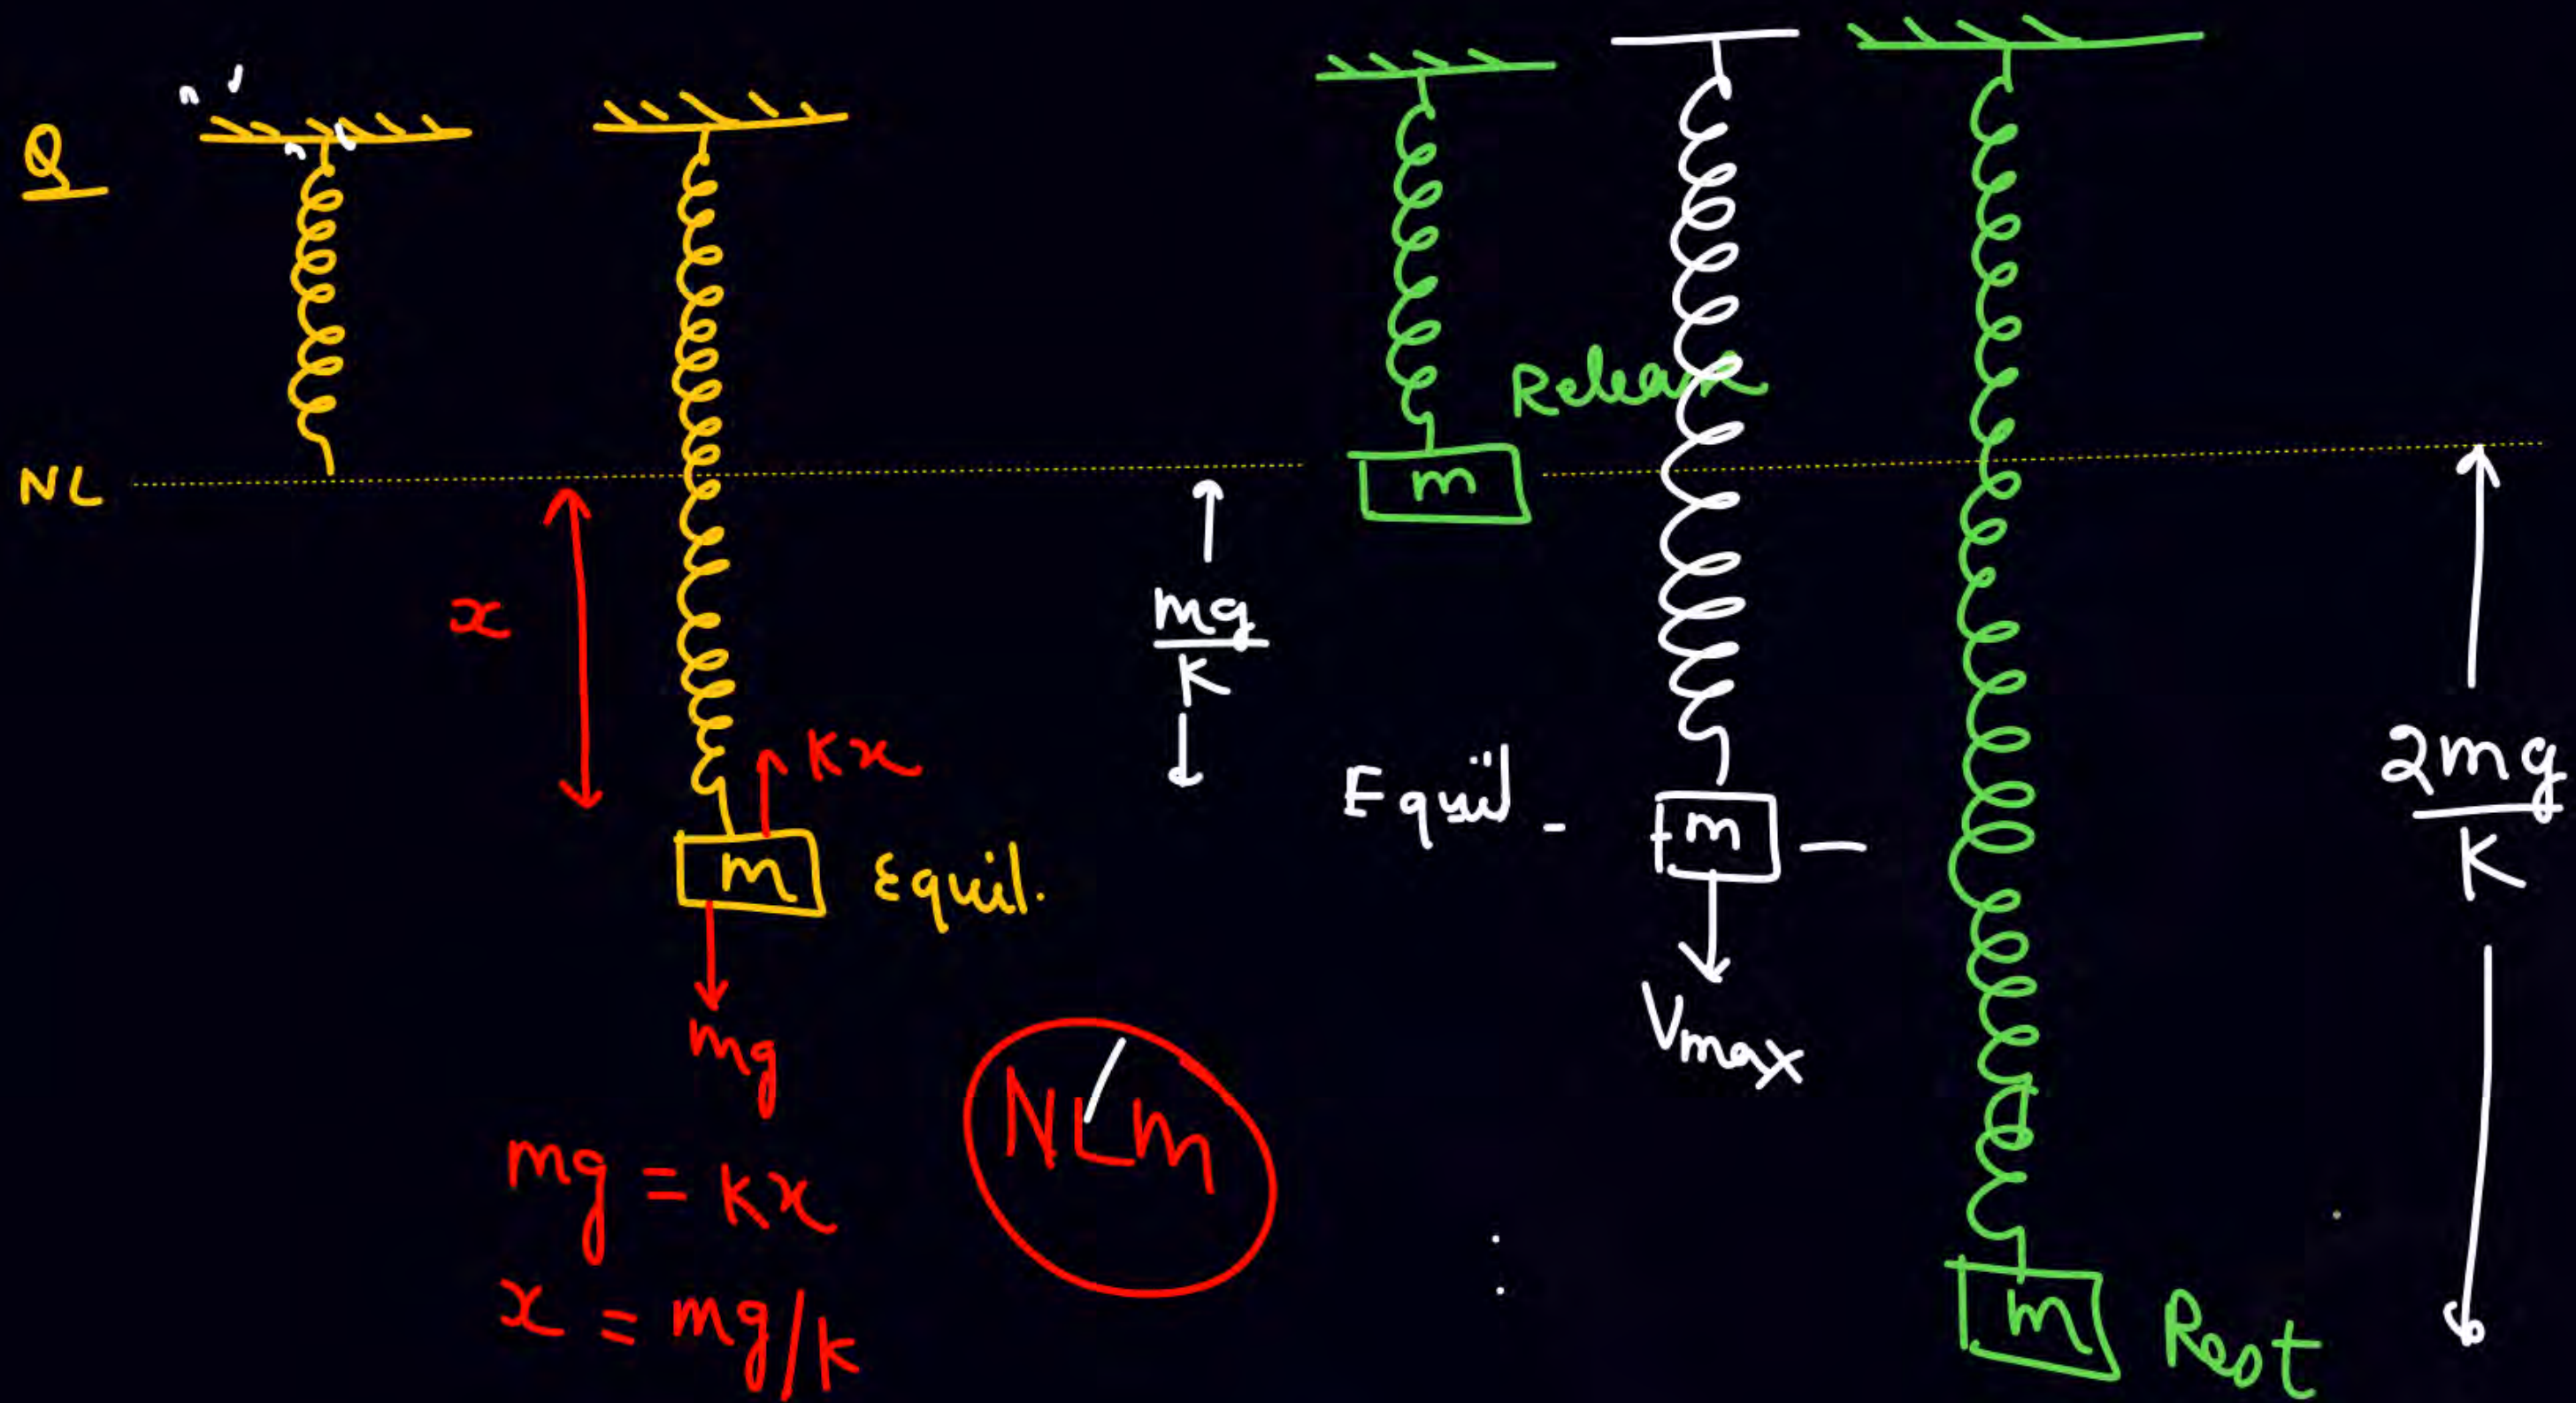 Q
NL
x
Kx
m
Equil.
mg
mg = Kx
x = mg/K
NLM
mg
K
m
Release
Equil
m
Vmax
m
Rest
2mg
K